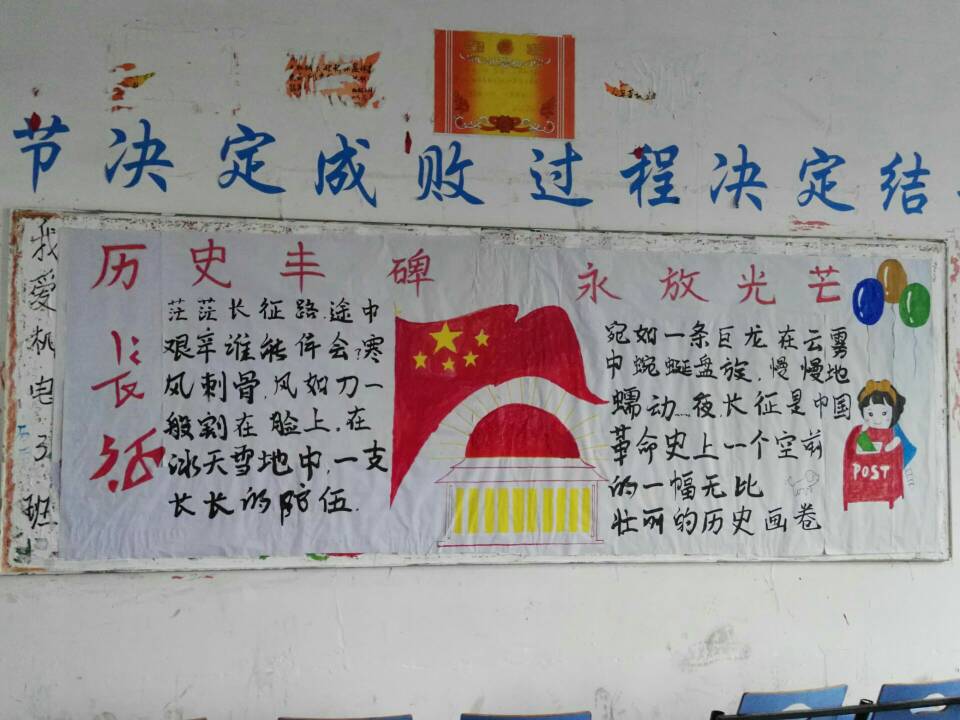 节决定成败过程决定结
我爱机电3班
历史丰碑
永放光芒
长征
茫茫长征路途中
艰辛谁能体会?寒
风刺骨.风如刀一
般割在脸上.在
冰天雪地中.一支
长长的队伍.
宛如一条巨龙在云雾
中蜿蜒盘旋.慢慢地
蠕动...长征是中国
革命史上一个空前
的一幅无比
壮丽的历史画卷
POST